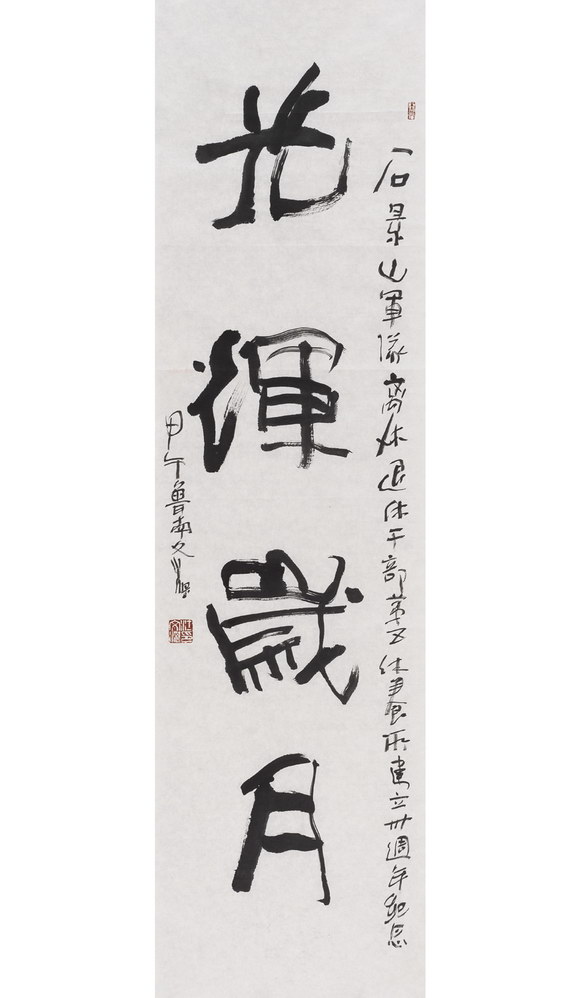 石景山軍隊離休退休干部第五休養所建立卅週年紀念
光輝歲月
甲午魯南文